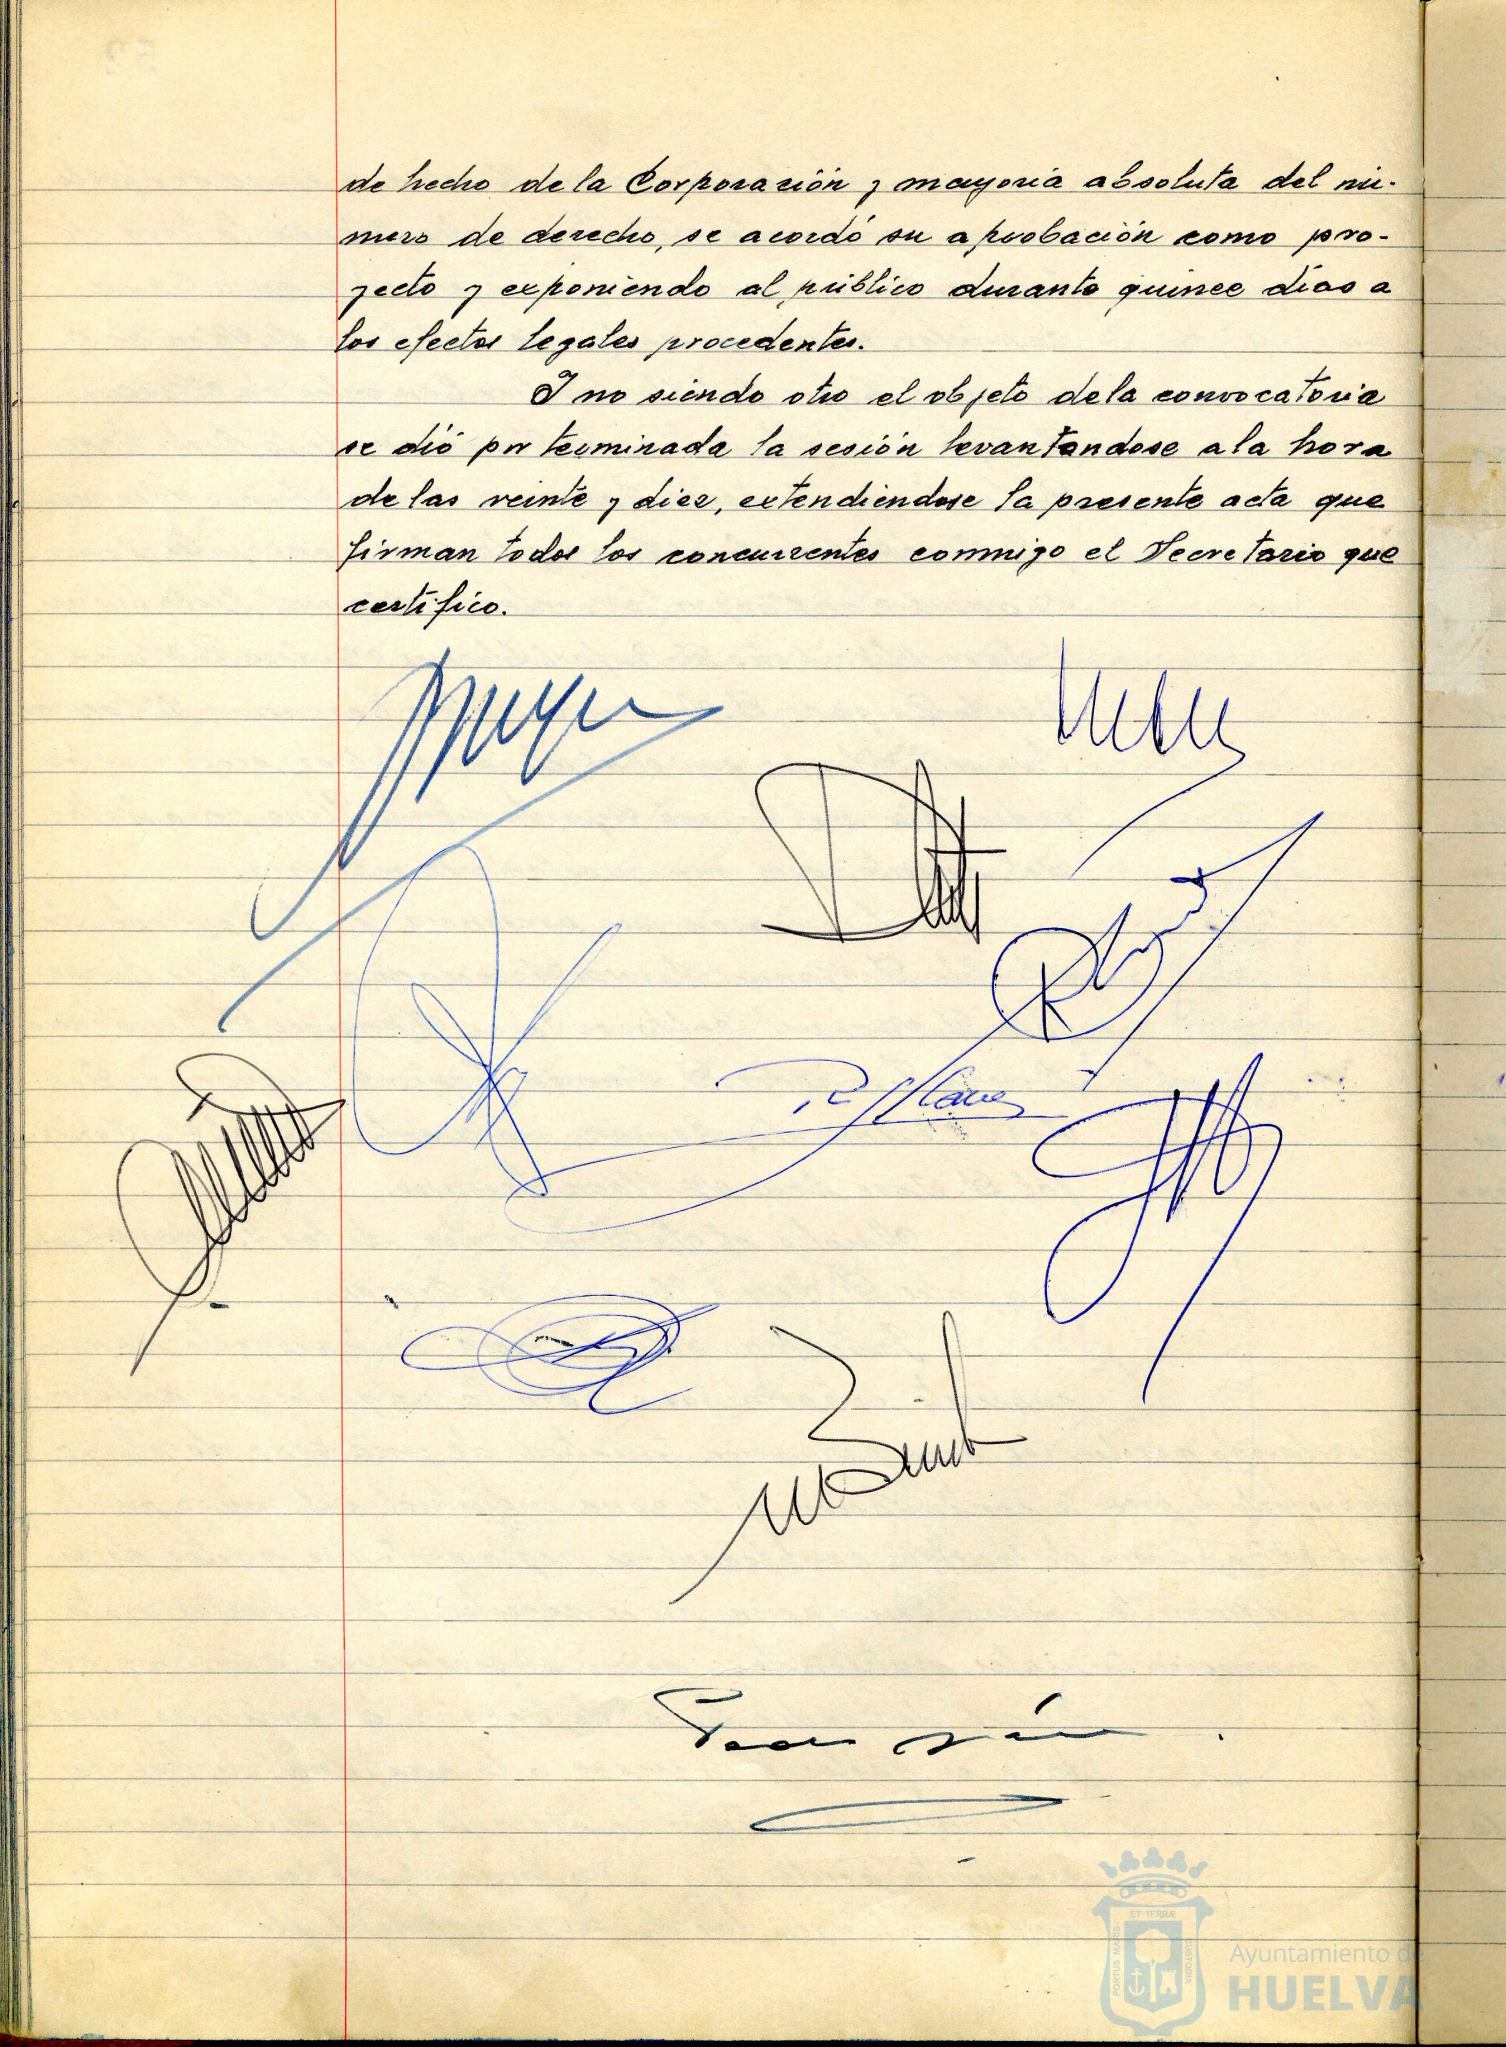 de hecho de la Corporación y mayoria absoluta del nú-
mero de derecho, se acordó su aprobación como pro-
yecto y exponiendo al público durante quince dias a
los efectos legales procedentes.
Y no siendo otro el objeto de la convocatoria
se dió por terminada la sesión levantandose a la hora
de las veinte y diez, extendiéndose la presente acta que
firman todos los concurrentes conmigo el Secretario que
certifico.
ET TERRÆ
PORTUS MARIS
CUSTODIA
Ayuntamiento de
HUELVA